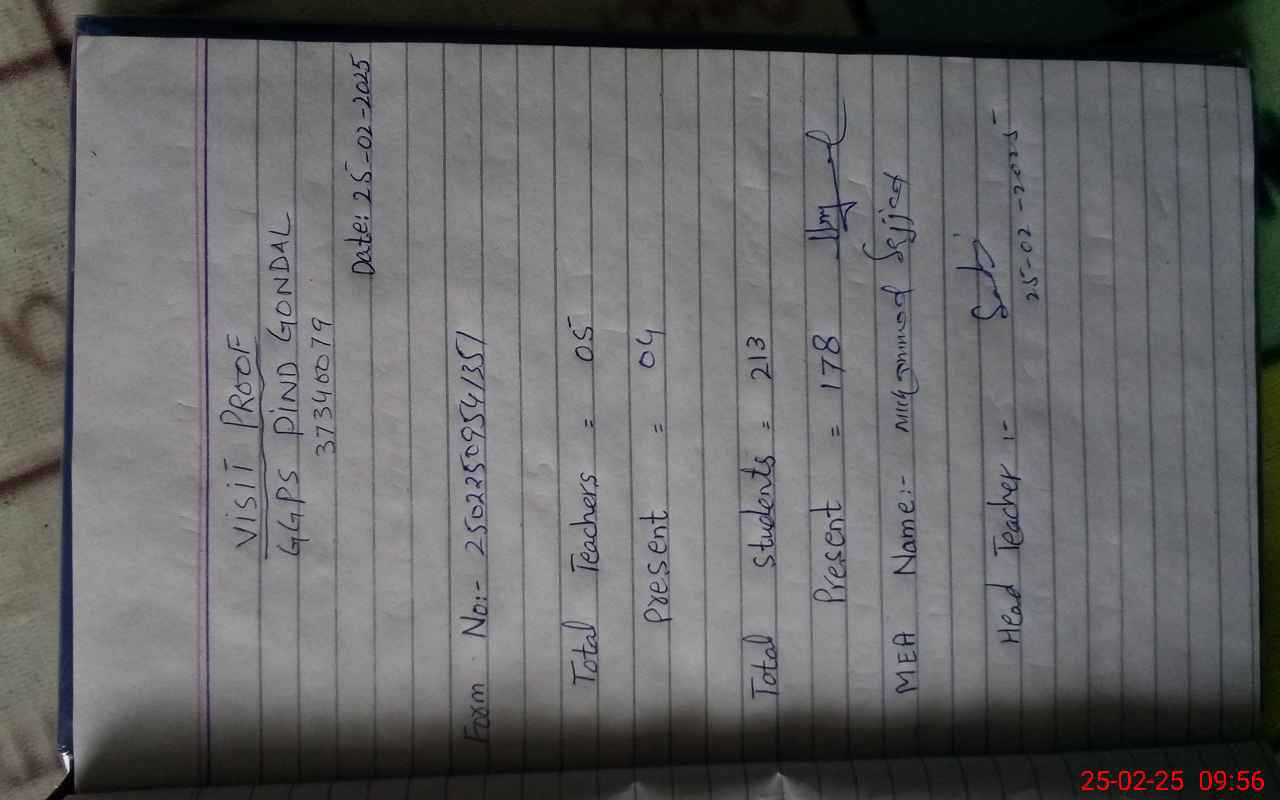 VISIT PROOF
GGPS PIND GONDAL
37340079
Date: 25-02-2025
Form No:- 25022509541351
Total Teachers = 05
Present = 04
Total Students = 213
Present = 178
MEA Name:- Muhammad Sajjad
Head Teacher :-
25-02-2025
25-02-25 09:56